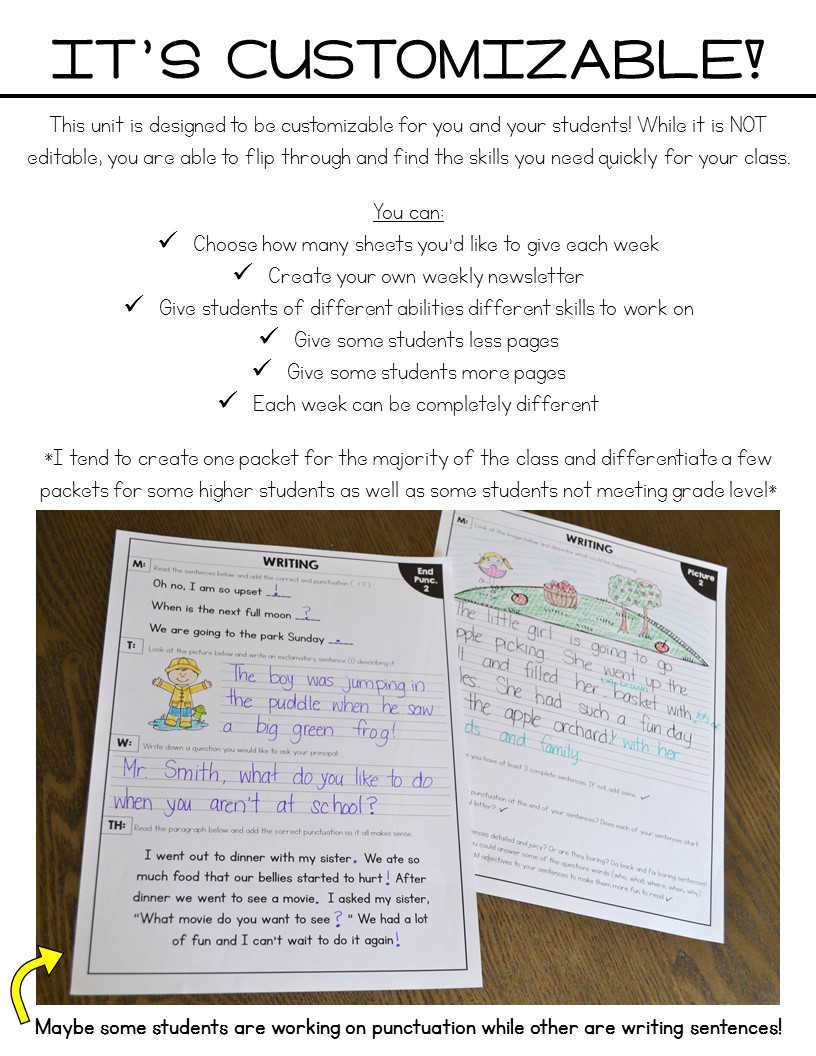 IT'S CUSTOMIZABLE!
This unit is designed to be customizable for you and your students! While it is NOT
editable, you are able to flip through and find the skills you need quickly for your class.
You can:
✓ Choose how many sheets you'd like to give each week
✓ Create your own weekly newsletter
✓ Give students of different abilities different skills to work on
✓ Give some students less pages
✓ Give some students more pages
✓ Each week can be completely different
*I tend to create one packet for the majority of the class and differentiate a few
packets for some higher students as well as some students not meeting grade level*
WRITING
End
Punc.
2
M: Read the sentences below and add the correct end punctuation (. ! ?)
Oh no, I am so upset !
When is the next full moon ?
We are going to the park Sunday .
T: Look at the picture below and write an exclamatory sentence (!) describing it
The boy was jumping in
the puddle when he saw
a big green frog!
W: Write down a question you would like to ask your principal
Mr. Smith, what do you like to do
when you aren't at school?
TH: Read the paragraph below and add the correct punctuation so it all makes sense
I went out to dinner with my sister. We ate so
much food that our bellies started to hurt! After
dinner we went to see a movie. I asked my sister,
"What movie do you want to see? " We had a lot
of fun and I can't wait to do it again!
WRITING
Picture
2
M: Look at the image below and describe what could be happening
The little girl is going to go
pple picking. She went up the
ll and filled her basket with
les. She had such a fun day
the apple orchard with her
ds and family.
you have at least 3 complete sentences. If not, add some ✓
punctuation at the end of your sentences? Does each of your sentences start
letter? ✓
ences detailed and juicy? Or are they boring? Go back and fix boring sentences!
u could answer some of the questions words (who, what, where, when, why)
dd adjectives to your sentences to make them more fun to read ✓
Maybe some students are working on punctuation while other are writing sentences!